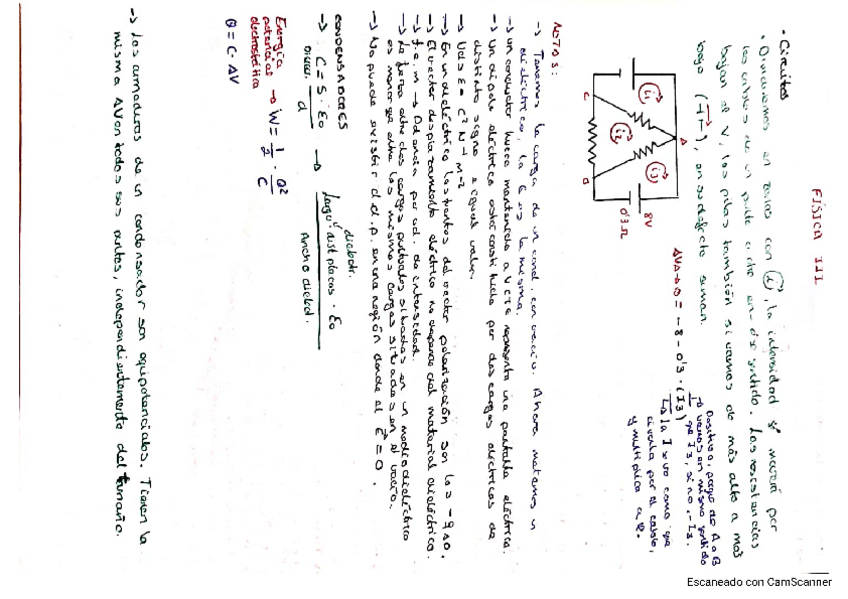 FÍSICA III
· Circuitos
· Dividiremos en zonas con i, la intensidad marcará por
los cables de un punto a otro en dicho sentido. Las resistencias
bajan el V, las pilas también si vamos de más alto a más
bajo (⊣⊢), en su defecto suman.
A
B
C
i1
i2
i3
8V
0'3 Ω
ΔVA→B = -8 - 0'3 · (I3)
Positivo, porque de A a B
vamos en mismo sentido
que I3, si no, -I3.
la I se va como que
circula por el cable,
y multiplica a R.
NOTAS:
→ Tenemos la carga de un cond. con vacío. Ahora metemos un
dieléctrico, la Q es la misma.
→ Un conductor hueco mantenido a V cte representa una pantalla eléctrica.
→ Un dipolo eléctrico está constituido por dos cargas eléctricas de
distinto signo e igual valor.
→ Ud. = C² N⁻¹ m⁻²
→ En un dieléctrico las fuentes del vector polarización son las -q
→ El vector desplazamiento eléctrico no depende del material dieléctrico.
→ f.e.m → Potencia por ud. de intensidad.
→ La fuerza entre dos cargas puntuales situadas en un medio dieléctrico
es menor que entre las mismas cargas situadas en el vacío.
→ No puede existir d.d.p. en una región donde el E = 0.
CONDENSADORES
→ C = S · ε0 / d →
Largo dieléctr. · ε0
dist placas
Ancho dieléct.
Energía
potencial → W = 1/2 · Q²/C
electrostática
Q = C · ΔV
→ Las armaduras de un condensador son equipotenciales. Tienen la
misma ΔV en todos sus puntos, independientemente del tamaño.
Escaneado con CamScanner